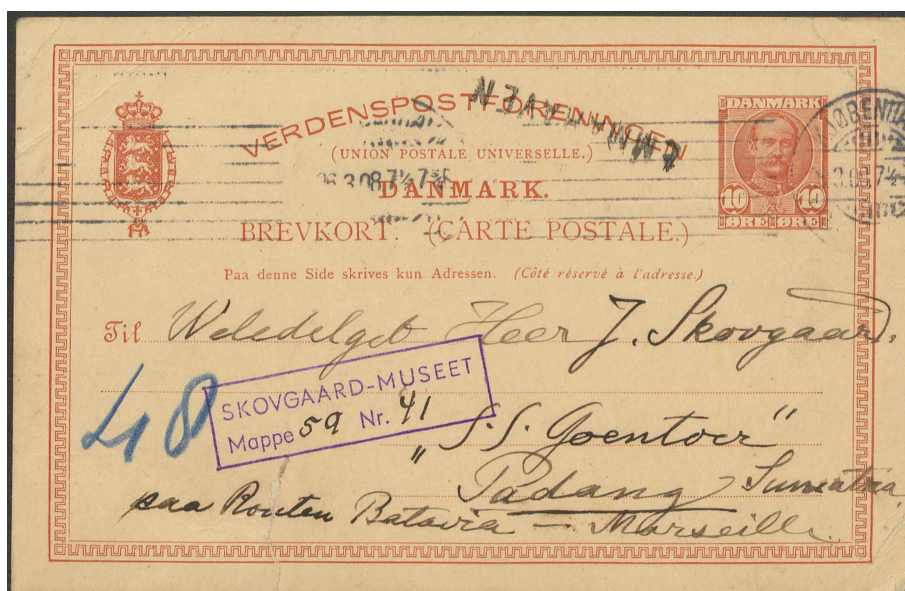 VERDENSPOSTFORENINGEN
(UNION POSTALE UNIVERSELLE.)
DANMARK.
BREVKORT. (CARTE POSTALE.)
Paa denne Side skrives kun Adressen. (Côté réservé à l'adresse.)
DANMARK
10 10
ØRE ØRE
Til Weledelgeb Heer J. Skovgaard.
48
SKOVGAARD-MUSEET
Mappe 59 Nr. 41
„S.S. Goentoer"
Padang Sumatra
paa Routen Batavia — Marseille